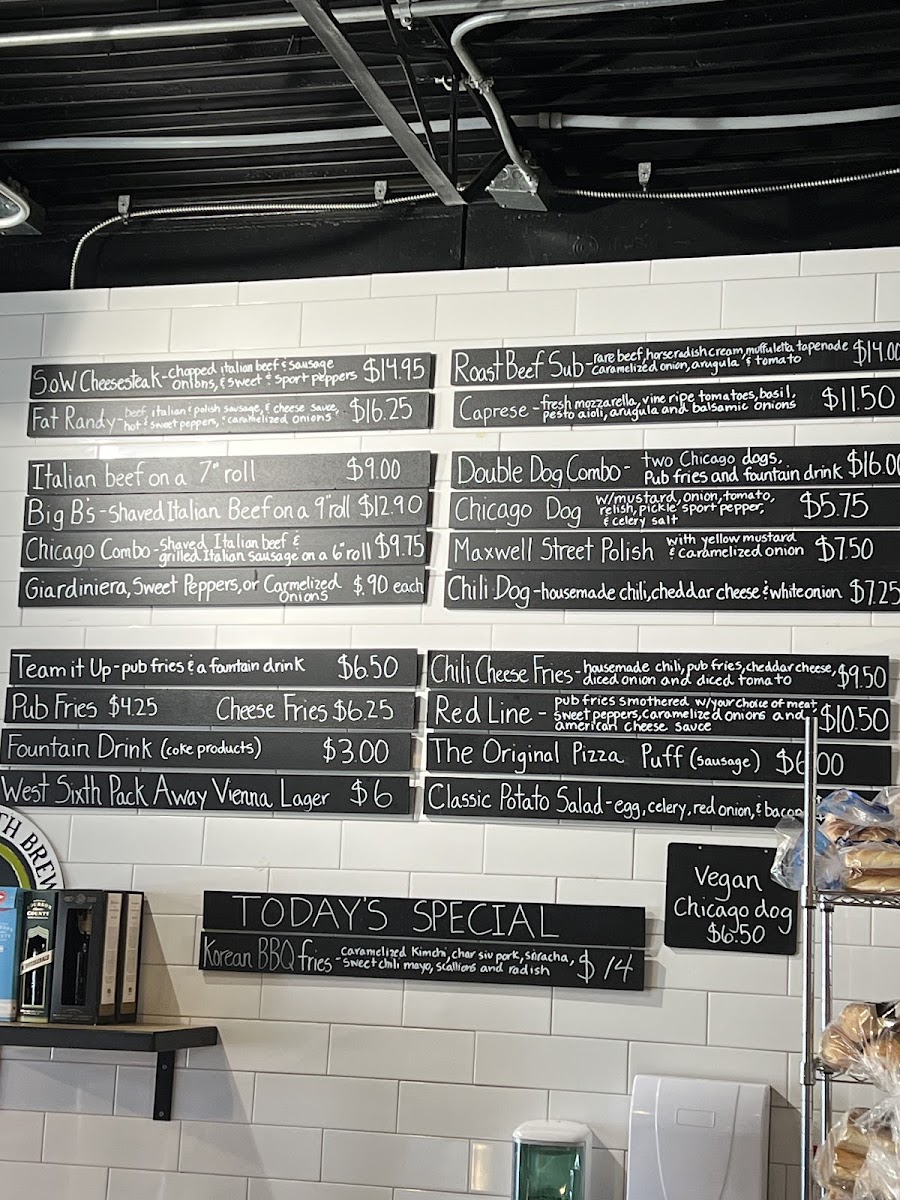 SoW Cheesesteak-chopped italian beef & sausage
onions, & sweet & sport peppers $14.95
Fat Randy-beef, italian & polish sausage, & cheese sauce,
hot & sweet peppers, & caramelized onions $16.25
Italian beef on a 7" roll $9.00
Big B's-shaved Italian Beef on a 9" roll $12.90
Chicago Combo-shaved Italian beef &
grilled Italian sausage on a 6" roll $9.75
Giardiniera, Sweet Peppers, or Carmelized
Onions $.90 each
Roast Beef Sub-rare beef, horseradish cream, muffuletta tapenade
caramelized onion, arugula & tomato $14.00
Caprese-fresh mozzarella, vine ripe tomatoes, basil,
pesto aioli, arugula and balsamic onions $11.50
Double Dog Combo- two Chicago dogs,
Pub fries and fountain drink $16.00
Chicago Dog w/mustard, onion, tomato,
relish, pickle, sport pepper,
& celery salt $5.75
Maxwell Street Polish with yellow mustard
& caramelized onion $7.50
Chili Dog-housemade chili, cheddar cheese & white onion $7.25
Team it Up-pub fries & a fountain drink $6.50
Pub Fries $4.25 Cheese Fries $6.25
Fountain Drink (coke products) $3.00
West Sixth Pack Away Vienna Lager $6
Chili Cheese Fries-housemade chili, pub fries, cheddar cheese,
diced onion and diced tomato $9.50
Red Line- pub fries smothered w/your choice of meat,
sweet peppers, caramelized onions and
american cheese sauce $10.50
The Original Pizza Puff (sausage) $6.00
Classic Potato Salad-egg, celery, red onion, & bacon
Vegan
Chicago dog
$6.50
TODAY'S SPECIAL
Korean BBQ fries-caramelized Kimchi, char siv pork, sriracha,
sweet chili mayo, scallions and radish $14
TH BREW